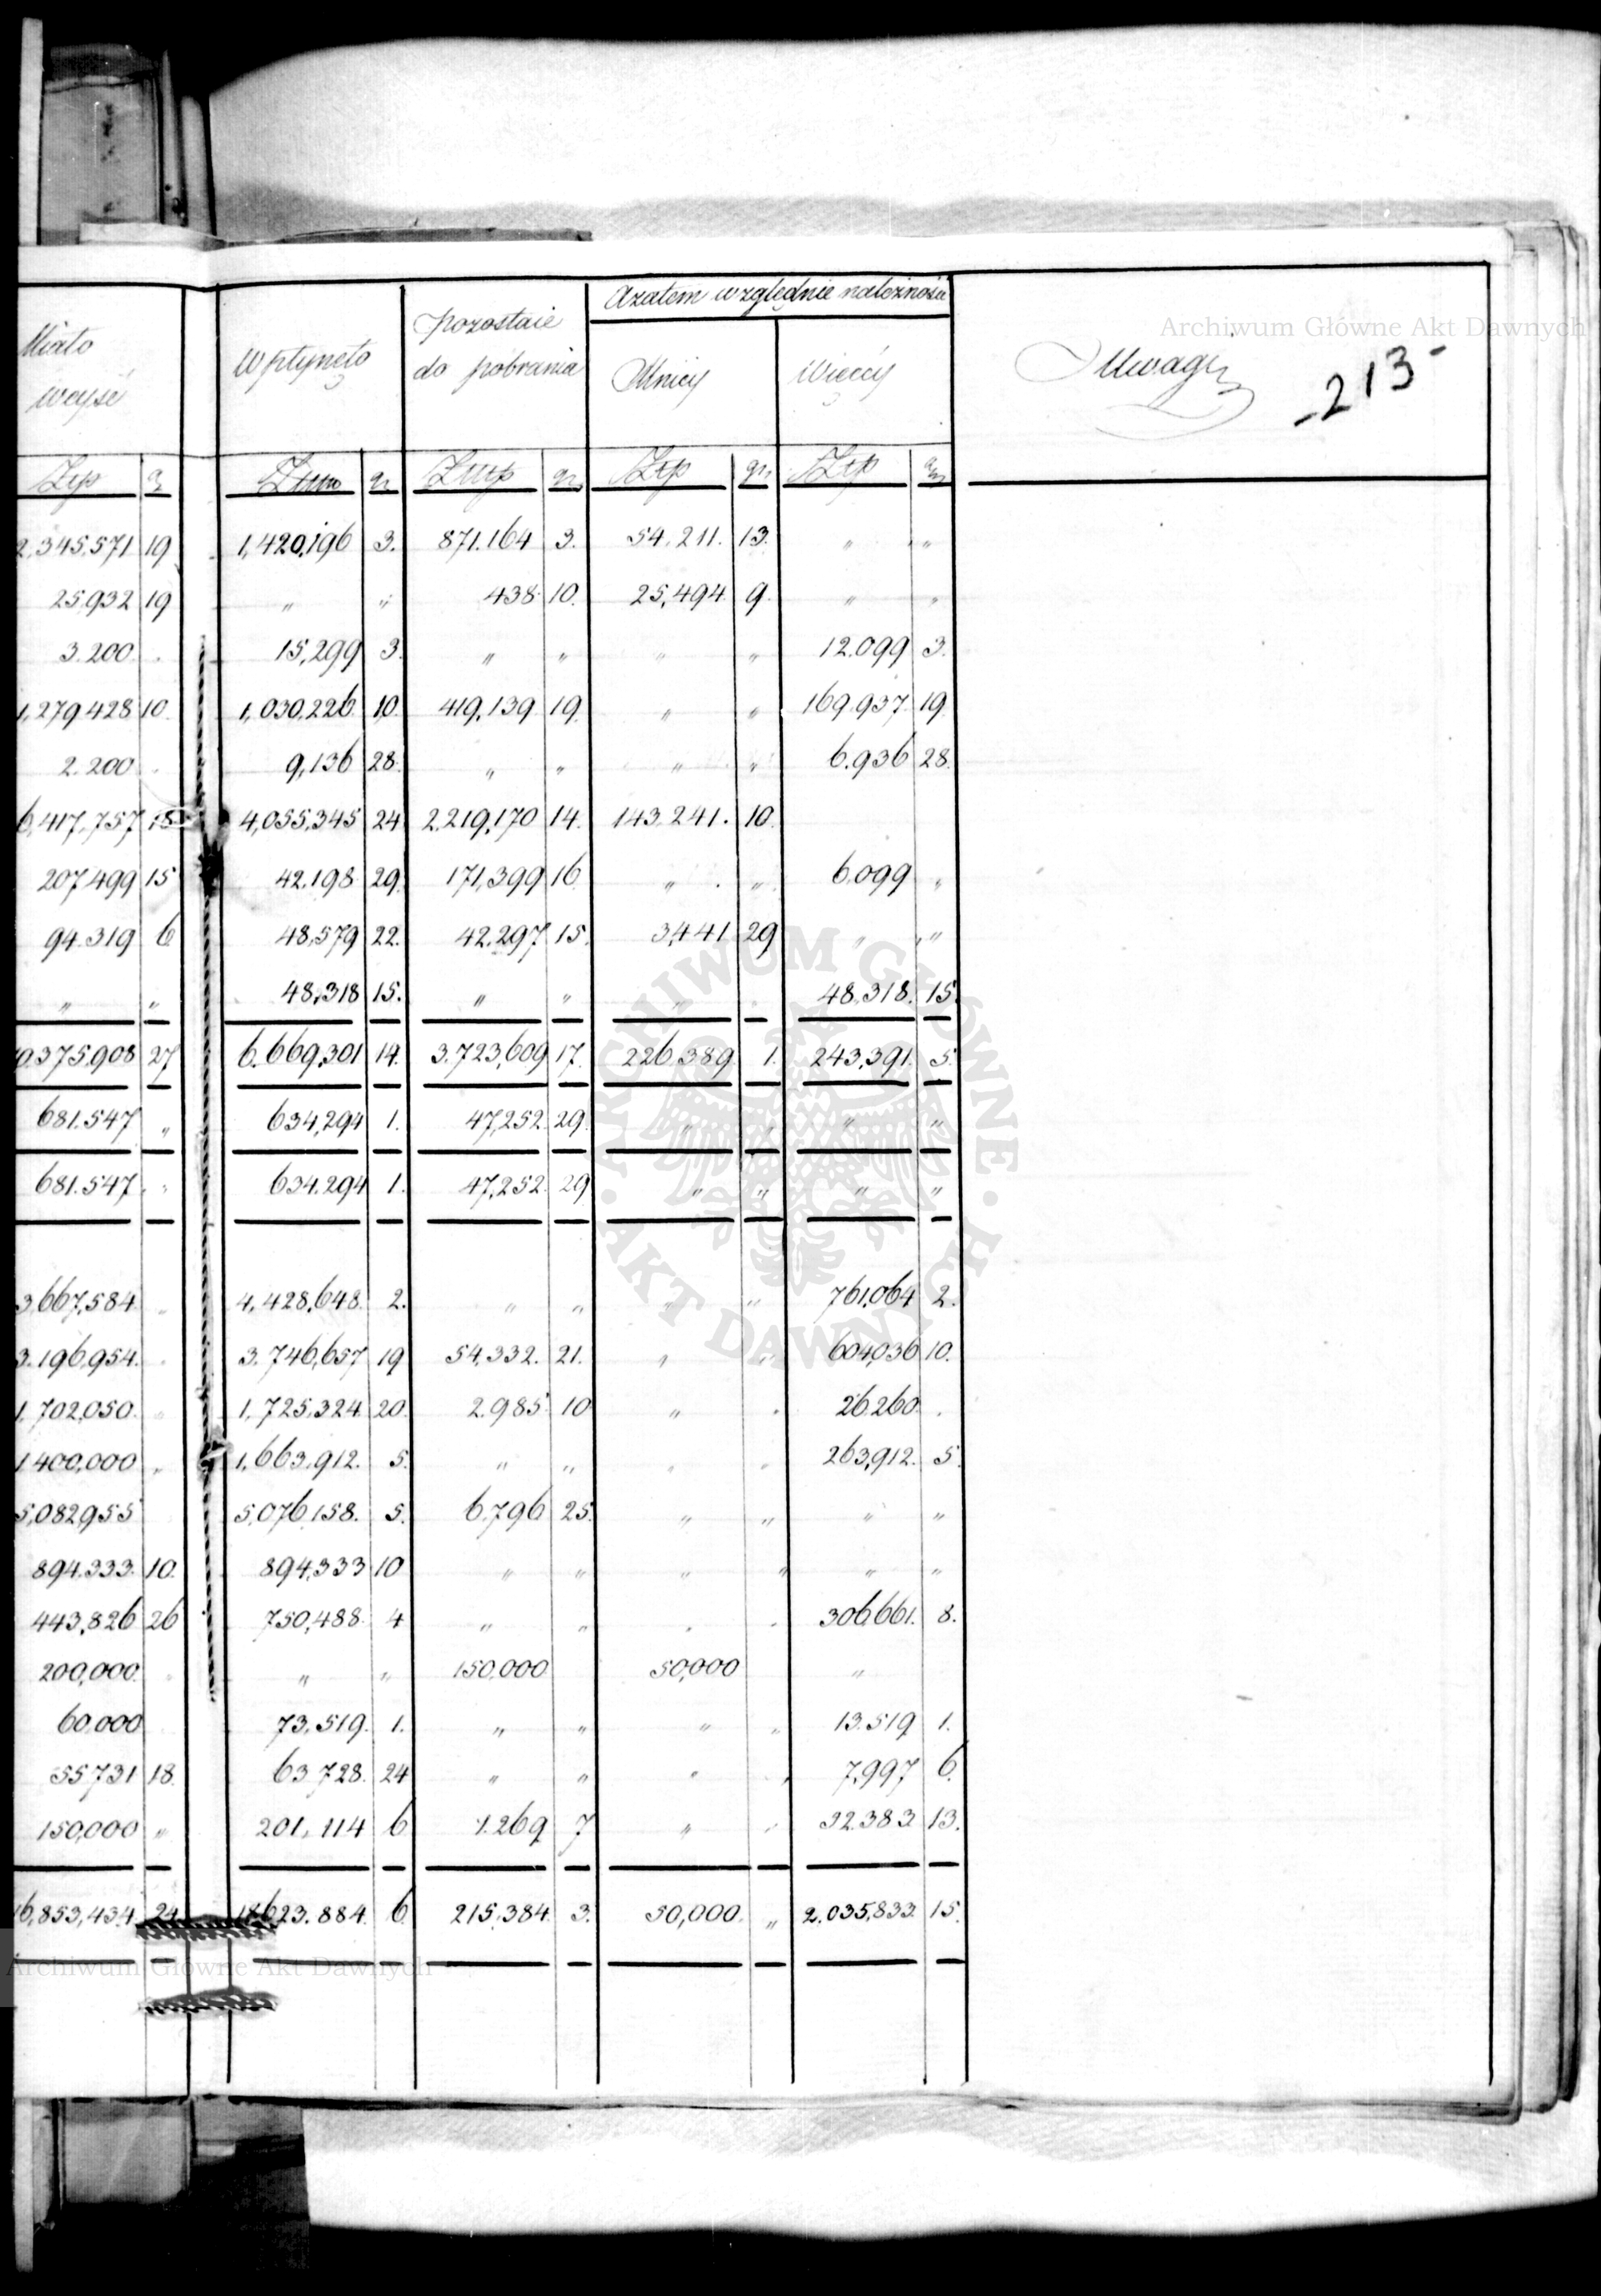 Archiwum Główne Akt Dawnych
Azatem względnie należności
Miało weyść Wpłynęło pozostaie do pobrania Mniey Więcéy Uwagi -213-
Złp gr Złp gr Złp gr Złp gr Złp gr
2,345,571 19 1,420,196 3. 871.164 3. 54.211. 13. " "
25,932 19 " " 438 10. 25,494 9. " "
3.200. . 15,299 3. " " " " 12.099 3.
1,279428 10. 1,030.226. 10. 419,139 19. " " 169.937. 19.
2.200 . 9,136 28. " " " " 6.936 28.
6,417,757 18 4,055,345 24 2.219,170 14. 143.241. 10.
207499 15 42.198 29. 171,399 16 " " 6.099 "
94.319 6 48,579 22. 42.297 15. 3,441 29 " "
" " 48,318 15. " " " . 48.318. 15.
0.375,908 27 6.669,301 14. 3.723,609 17. 226.389 1. 243,391. 5.
681.547 " 634,294 1. 47,252. 29. " " " "
681.547 " 634.294 1. 47,252. 29 " " " "
3,667,584 " 4,428,648. 2. " " " " 761,064 2.
3.196,954. . 3.746,657 19 54,332. 21. " " 604,036 10.
1,702,050. " 1,725,324 20. 2.985. 10 " . 26.260. .
1400,000 " 1,663.912. 5. " " " . 263,912. 5.
5,082955 5,076,158. 5. 6.796 25. " " " "
894.333. 10. 894,333 10 " " " " " "
443,826 26 750,488. 4 " " " . 306,661. 8.
200,000. " " " 150.000 50,000 "
60,000 73,519. 1. " " " " 13.519 1.
55731 18. 63728. 24 " " " " 7,997 6.
150,000 " 201,114 6 1.269 7 " " 52.383 13.
16,853,434. 24 18623.884. 6 215,384. 3. 50,000. " 2.035,833. 15.
Archiwum Główne Akt Dawnych
ARCHIWUM GŁÓWNE · AKT DAWNYCH ·